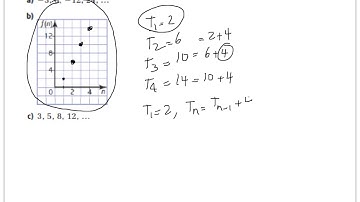 b)
f(n)
12
8
4
0 2 4 n
c) 3, 5, 8, 12, ...
T₁ = 2
T₂ = 6 = 2+4
T₃ = 10 = 6+4
T₄ = 14 = 10+4
T₁ = 2, Tₙ = Tₙ₋₁ + 4